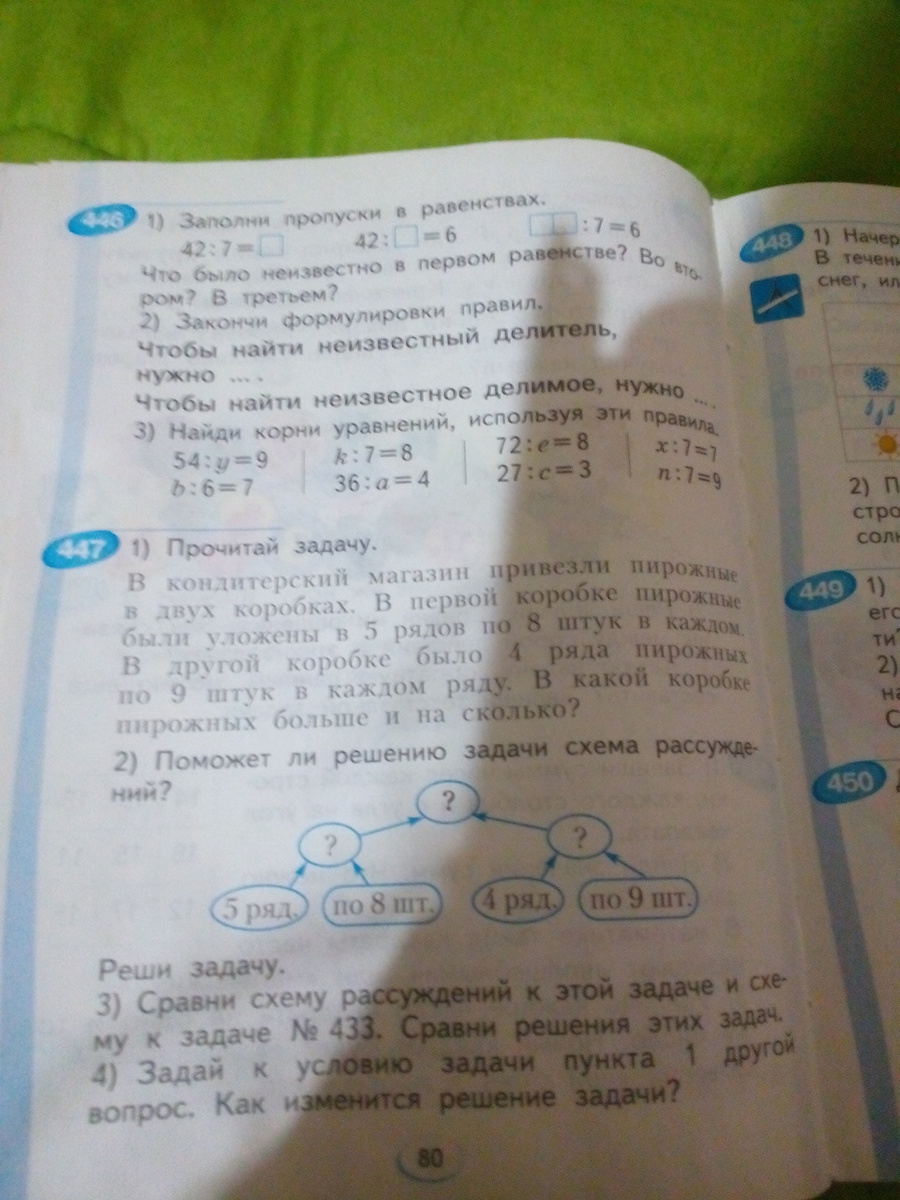 446 1) Заполни пропуски в равенствах.
42:7= 42: =6 :7=6
Что было неизвестно в первом равенстве? Во вто-
ром? В третьем?
2) Закончи формулировки правил.
Чтобы найти неизвестный делитель,
нужно ... .
Чтобы найти неизвестное делимое, нужно ... .
3) Найди корни уравнений, используя эти правила.
54:y=9 k:7=8 72:e=8 x:7=7
b:6=7 36:a=4 27:c=3 n:7=9
447 1) Прочитай задачу.
В кондитерский магазин привезли пирожные
в двух коробках. В первой коробке пирожные
были уложены в 5 рядов по 8 штук в каждом.
В другой коробке было 4 ряда пирожных
по 9 штук в каждом ряду. В какой коробке
пирожных больше и на сколько?
2) Поможет ли решению задачи схема рассужде-
ний?
?
? ?
5 ряд. по 8 шт. 4 ряд. по 9 шт.
Реши задачу.
3) Сравни схему рассуждений к этой задаче и схе-
му к задаче № 433. Сравни решения этих задач.
4) Задай к условию задачи пункта 1 другой
вопрос. Как изменится решение задачи?
80
448 1) Начер
В течени
снег, ил
2) П
стро
солн
449 1)
его
ти?
2)
на
С
450